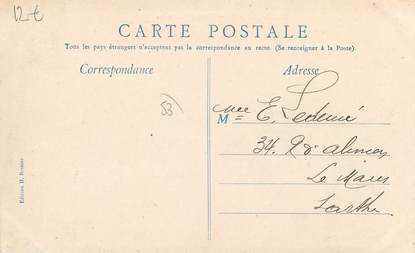 12 €
CARTE POSTALE
Tous les pays étrangers n'acceptent pas la correspondance en recto. (Se renseigner à la Poste).
Correspondance
Adresse
53)
Mlle E.
34. R d'alençon
Le Mans
Sarthe
Edition H.